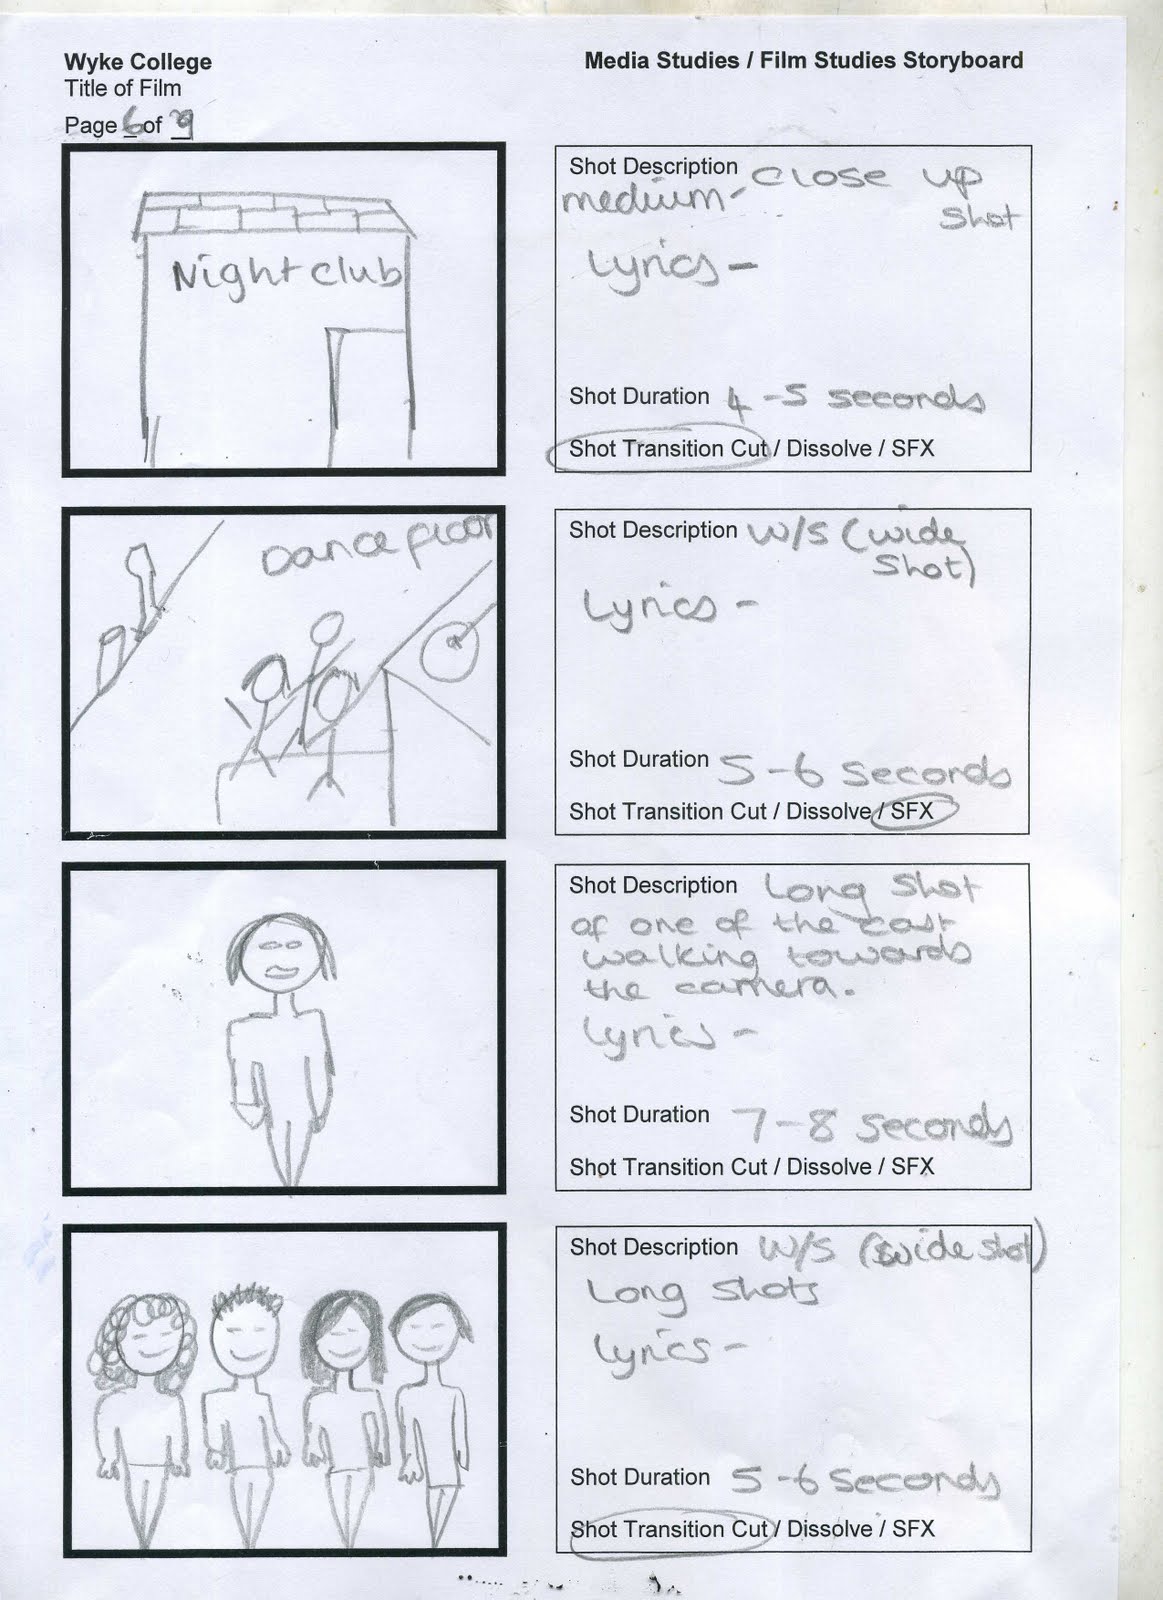 Wyke College
Media Studies / Film Studies Storyboard
Title of Film
Page 6 of 9
Nightclub
Shot Description close up
medium- shot
Lyrics -
Shot Duration 4 -5 seconds
Shot Transition Cut / Dissolve / SFX
Dancefloor
Shot Description W/S (wide
shot)
Lyrics -
Shot Duration 5-6 seconds
Shot Transition Cut / Dissolve / SFX
Shot Description Long shot
of one of the cast
walking towards
the camera.
Lyrics -
Shot Duration 7-8 seconds
Shot Transition Cut / Dissolve / SFX
Shot Description W/S (wide shot)
Long shots
Lyrics -
Shot Duration 5 -6 seconds
Shot Transition Cut / Dissolve / SFX